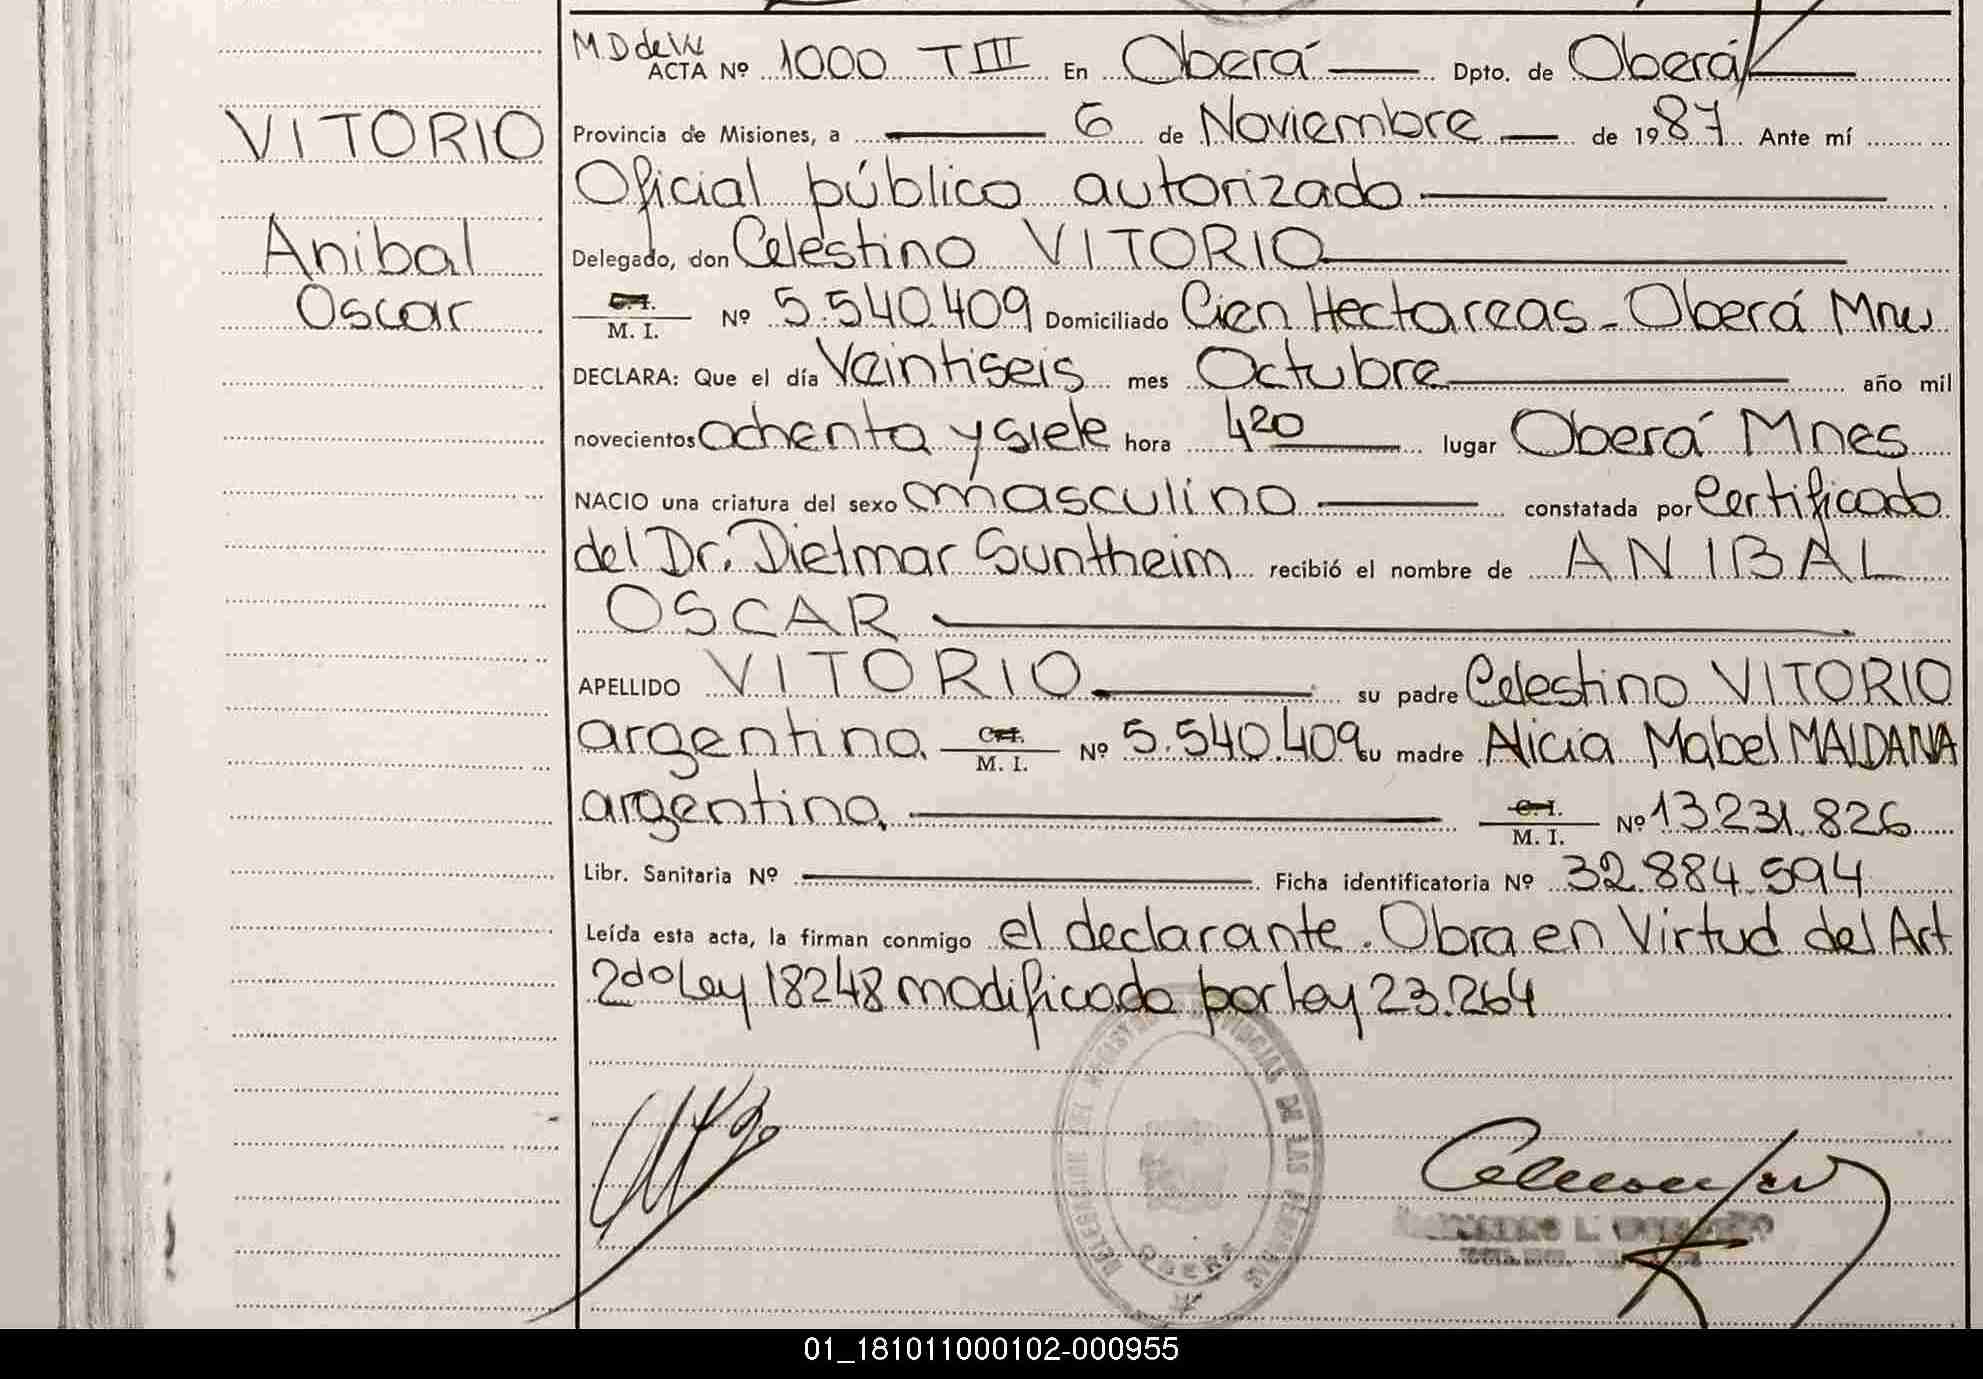 M.D de W
ACTA Nº 1000 TIII En Oberá Dpto. de Oberá
VITORIO
Provincia de Misiones, a 6 de Noviembre de 1987 Ante mí
Oficial público autorizado
Anibal
Oscar
Delegado, don Celestino VITORIO
C.I.
M. I. Nº 5.540.409 Domiciliado Cien Hectareas - Oberá Mnes
DECLARA: Que el día Veintiseis mes Octubre año mil
novecientos ochenta y siete hora 4 20 lugar Oberá Mnes
NACIO una criatura del sexo masculino constatada por Certificado
del Dr. Dietmar Suntheim recibió el nombre de ANIBAL
OSCAR
APELLIDO VITORIO su padre Celestino VITORIO
argentino C.I.
M. I. Nº 5.540.409 su madre Alicia Mabel MALDANA
argentina C.I.
M. I. Nº 13.231.826
Libr. Sanitaria Nº Ficha identificatoria Nº 32.884.594
Leída esta acta, la firman conmigo el declarante. Obra en Virtud del Art
2do Ley 18248 modificado por Ley 23.264
DE LAS PERSONAS
OBERA
01_181011000102-000955